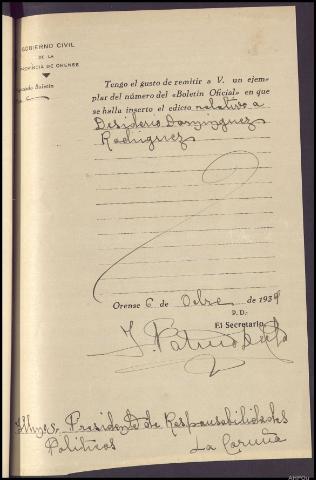 GOBIERNO CIVIL
DE LA
PROVINCIA DE ORENSE
Tengo el gusto de remitir a V. un ejem-
plar del número del «Boletín Oficial» en que
se halla inserto el edicto relativo a
Desiderio Domínguez
Rodríguez
Orense 6 de Octbre de 1939
P. D.
El Secretario,
Presidente de Responsabilidades
Políticas
La Coruña
AHPOu